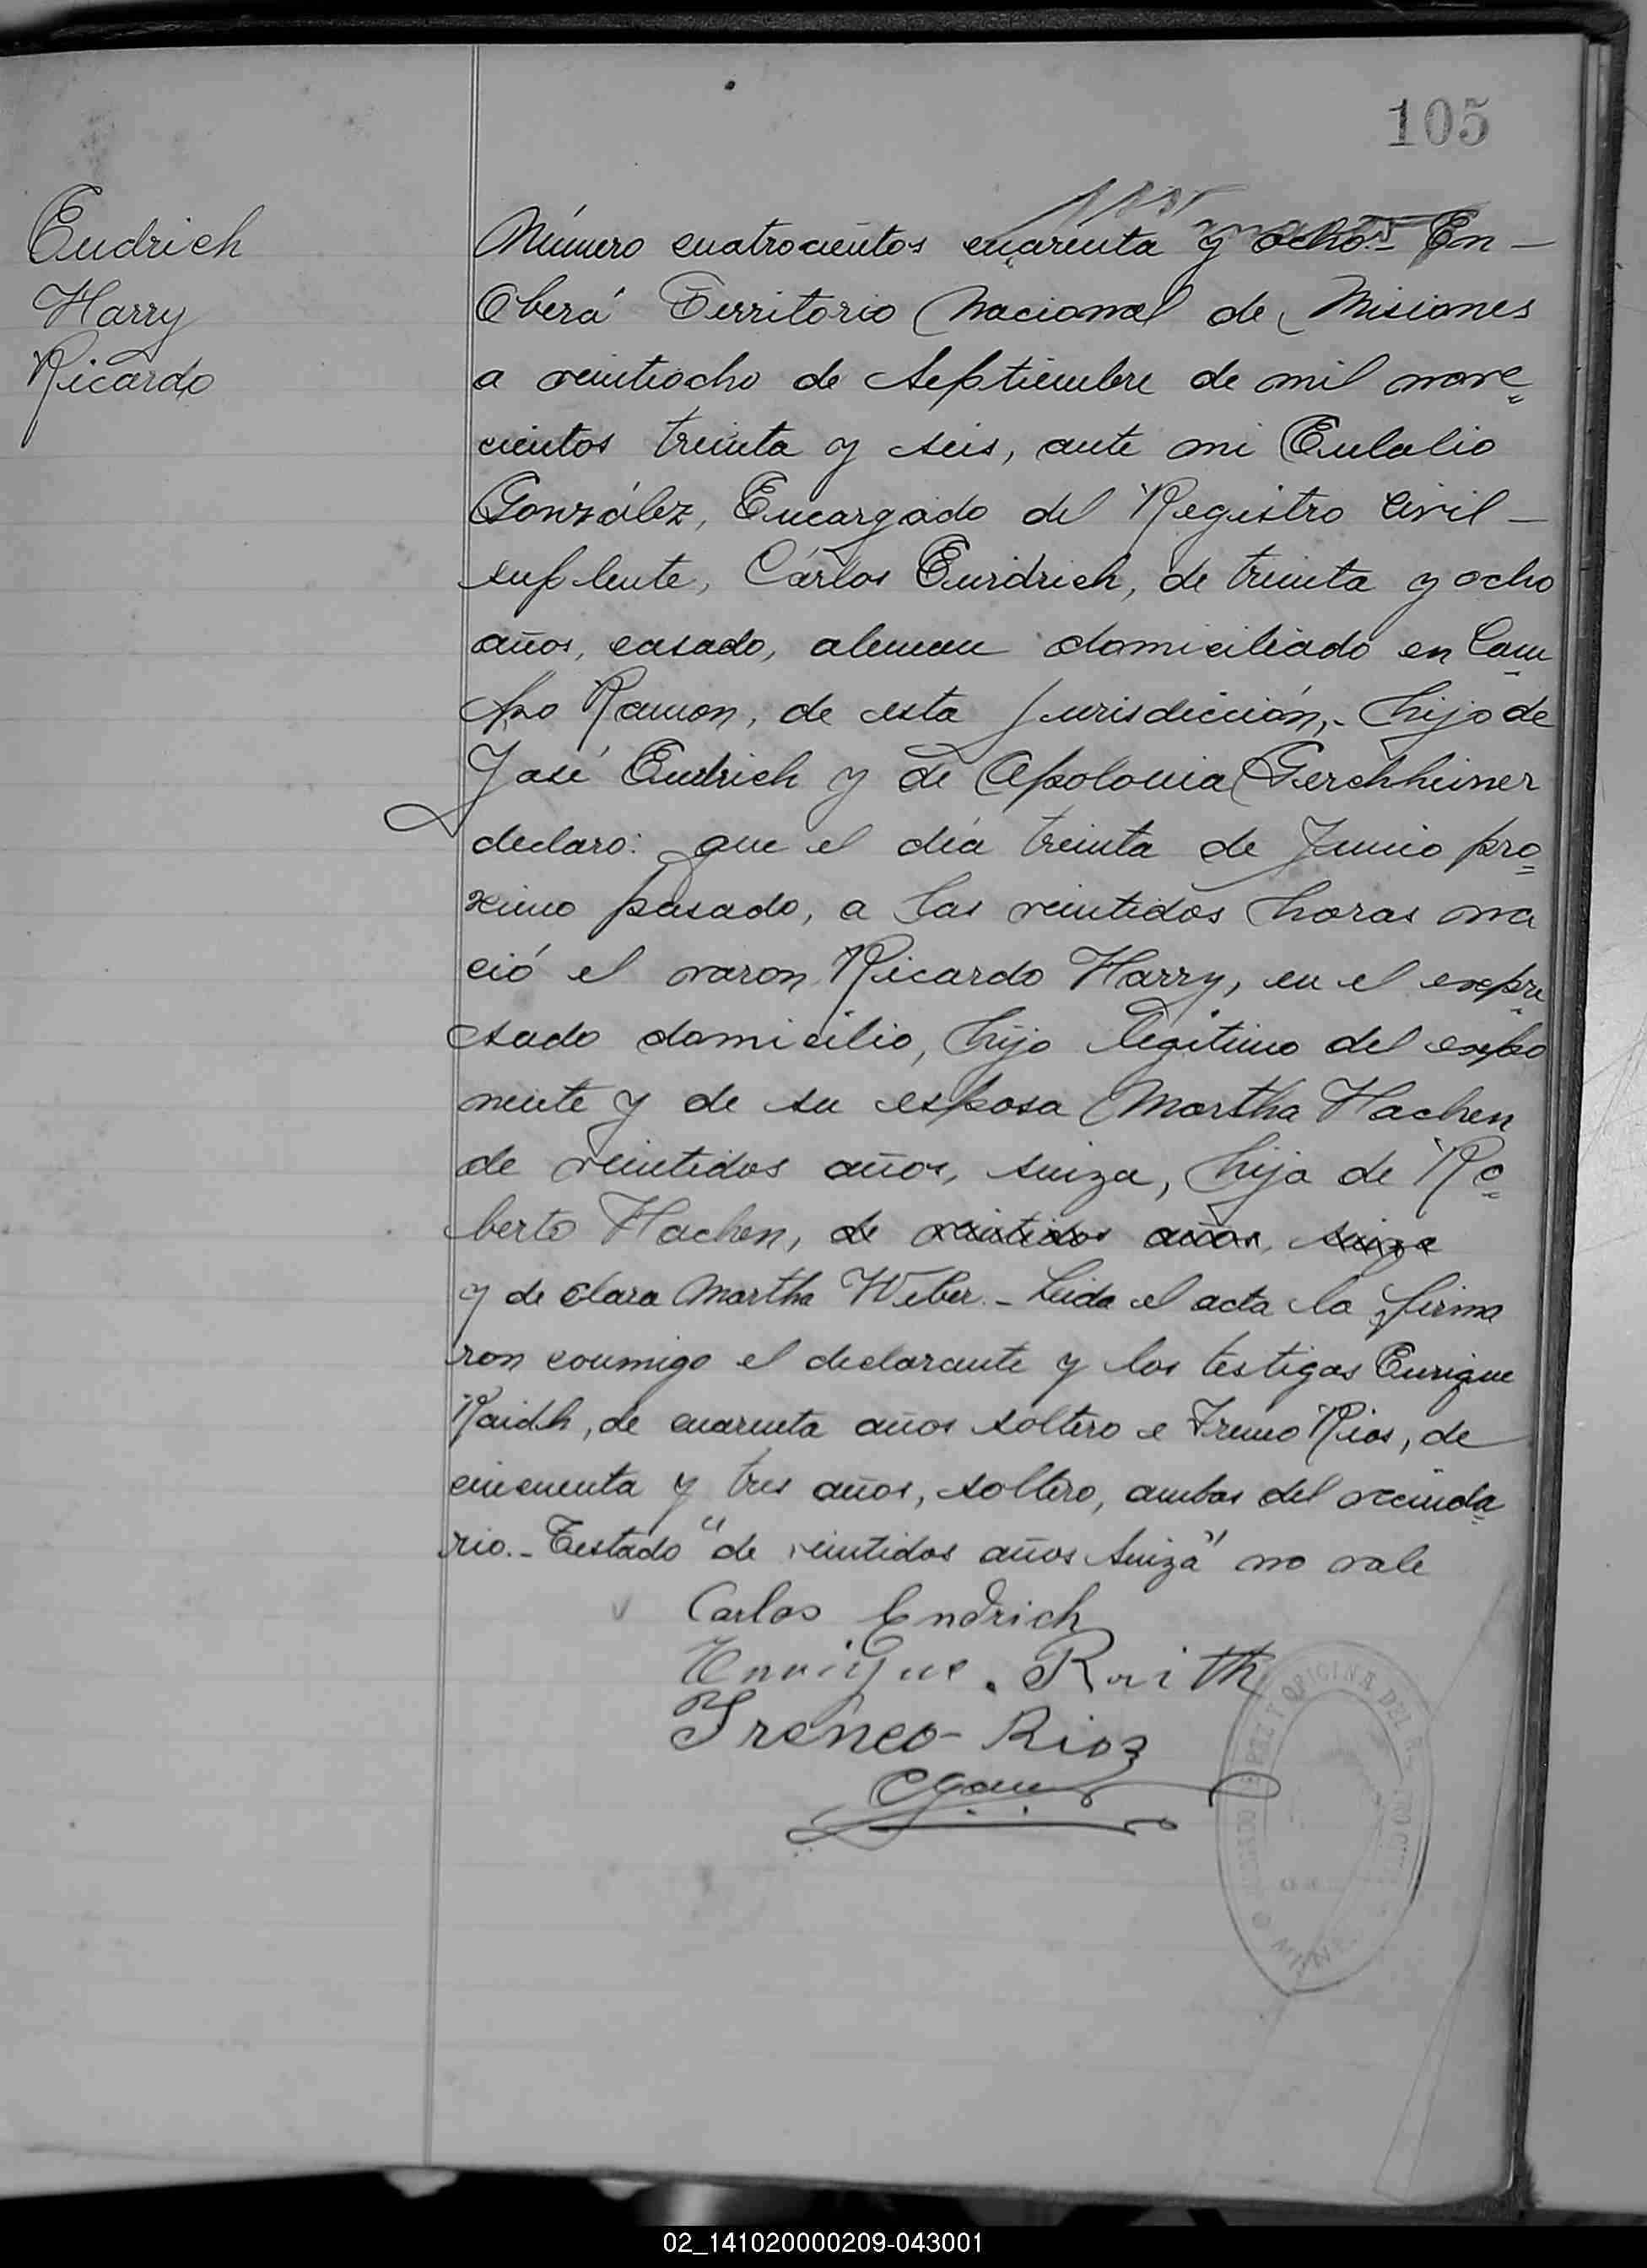 105
Endrich
Harry
Ricardo
Número cuatrocientos cuarenta y ocho.- En -
Oberá Territorio Nacional de Misiones
a veintiocho de Septiembre de mil nove=
cientos treinta y seis, ante mi Eulalio
González, Encargado del Registro Civil -
suplente, Cárlos Endrich, de treinta y ocho
años, casado, aleman domiciliado en Cam
po Ramon, de esta jurisdicción,- hijo de
José Endrich y de Apolonia Gerchheimer
declaro: que el día treinta de Junio pro=
ximo pasado, a las veintidos horas na
ció el varon Ricardo Harry, en el expre
sado domicilio, hijo legitimo del expo
nente y de su esposa Martha Hachen
de veintidos años, suiza, hija de Ro=
berto Hachen, de veintidos años, suiza
y de Clara Martha Weber.- Leida el acta la firma
ron conmigo el declarante y los testigos Enrique
Raidh, de cuarenta años soltero e Ireneo Rios, de
cincuenta y tres años, soltero, ambos del vecinda
rio.- Testado "de veintidos años Suiza" no vale
Carlos Endrich
Enrique. Raith
Ireneo- Rioz
OFICINA DEL
02_141020000209-043001